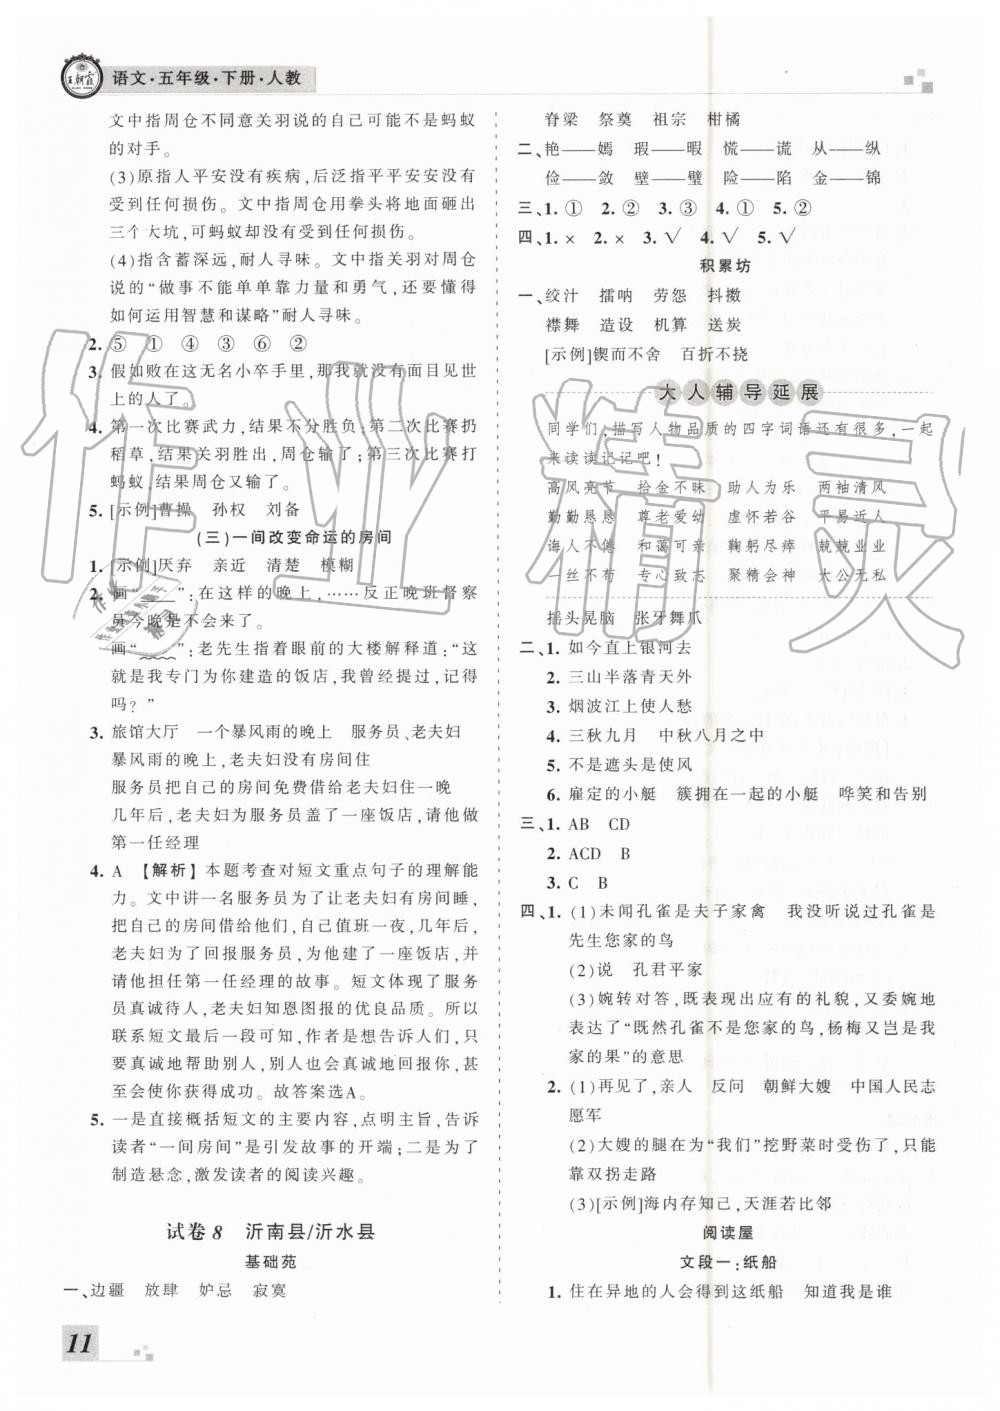 王朝霞
语文·五年级·下册·人教
文中指周仓不同意关羽说的自己可能不是蚂蚁
的对手。
(3)原指人平安没有疾病,后泛指平平安安没有
受到任何损伤。文中指周仓用拳头将地面砸出
三个大坑,可蚂蚁却没有受到任何损伤。
(4)指含蓄深远,耐人寻味。文中指关羽对周仓
说的“做事不能单单靠力量和勇气,还要懂得
如何运用智慧和谋略”耐人寻味。
2. ⑤ ① ④ ③ ⑥ ②
3. 假如败在这无名小卒手里,那我就没有面目见世
上的人了。
4. 第一次比赛武力,结果不分胜负;第二次比赛扔
稻草,结果关羽胜出,周仓输了;第三次比赛打
蚂蚁,结果周仓又输了。
5. [示例]曹操 孙权 刘备
(三)一间改变命运的房间
1. [示例]厌弃 亲近 清楚 模糊
2. 画“____”:在这样的晚上,……反正晚班督察
员今晚是不会来了。
画“﹏﹏”:老先生指着眼前的大楼解释道:“这
就是我专门为你建造的饭店,我曾经提过,记得
吗?”
3. 旅馆大厅 一个暴风雨的晚上 服务员、老夫妇
暴风雨的晚上,老夫妇没有房间住
服务员把自己的房间免费借给老夫妇住一晚
几年后,老夫妇为服务员盖了一座饭店,请他做
第一任经理
4. A 【解析】本题考查对短文重点句子的理解能
力。文中讲一名服务员为了让老夫妇有房间睡,
把自己的房间借给他们,自己值班一夜,几年后,
老夫妇为了回报服务员,为他建了一座饭店,并
请他担任第一任经理的故事。短文体现了服务
员真诚待人,老夫妇知恩图报的优良品质。所以
联系短文最后一段可知,作者是想告诉人们,只
要真诚地帮助别人,别人也会真诚地回报你,甚
至会使你获得成功。故答案选A。
5. 一是直接概括短文的主要内容,点明主旨,告诉
读者“一间房间”是引发故事的开端;二是为了
制造悬念,激发读者的阅读兴趣。
试卷8 沂南县/沂水县
基础苑
一、边疆 放肆 妒忌 寂寞
11
脊梁 祭奠 祖宗 柑橘
二、艳——嫣 瑕——暇 慌——谎 从——纵
俭——敛 壁——璧 险——陷 金——锦
三、1. ① 2. ② 3. ③ 4. ① 5. ②
四、1. × 2. × 3. √ 4. √ 5. √
积累坊
一、绞汁 擂呐 劳怨 抖擞
襟舞 造设 机算 送炭
[示例]锲而不舍 百折不挠
大人辅导延展
同学们,描写人物品质的四字词语还有很多,一起
来读读记记吧!
高风亮节 拾金不昧 助人为乐 两袖清风
勤勤恳恳 尊老爱幼 虚怀若谷 平易近人
诲人不倦 和蔼可亲 鞠躬尽瘁 兢兢业业
一丝不苟 专心致志 聚精会神 大公无私
摇头晃脑 张牙舞爪
二、1. 如今直上银河去
2. 三山半落青天外
3. 烟波江上使人愁
4. 三秋九月 中秋八月之中
5. 不是遮头是使风
6. 雇定的小艇 簇拥在一起的小艇 哗笑和告别
三、1. AB CD
2. ACD B
3. C B
四、1. (1)未闻孔雀是夫子家禽 我没听说过孔雀是
先生您家的鸟
(2)说 孔君平家
(3)婉转对答,既表现出应有的礼貌,又委婉地
表达了“既然孔雀不是您家的鸟,杨梅又岂是我
家的果”的意思
2. (1)再见了,亲人 反问 朝鲜大嫂 中国人民志
愿军
(2)大嫂的腿在为“我们”挖野菜时受伤了,只能
靠双拐走路
(3)[示例]海内存知己,天涯若比邻
阅读屋
文段一:纸船
1. 住在异地的人会得到这纸船 知道我是谁
作业精灵